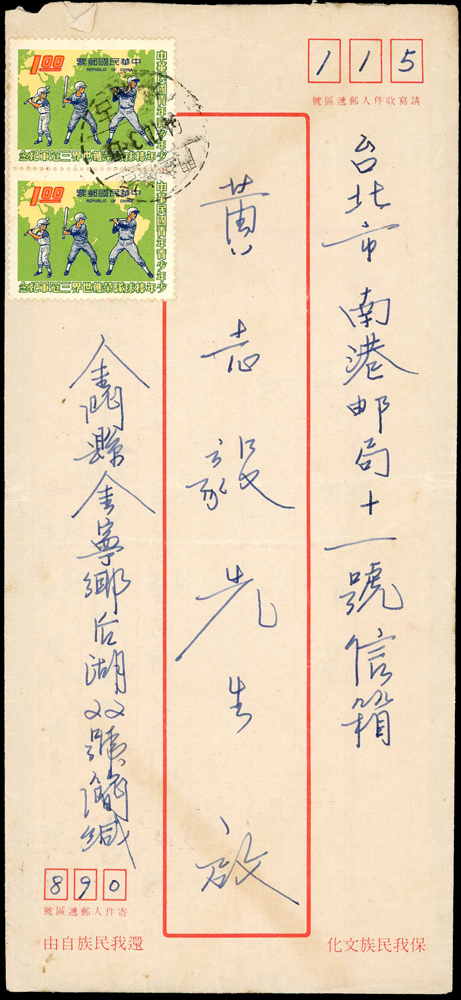 115
號區遞郵人件收寫請
台北市南港邮局十一號信箱
黄志毅先生啟
金門縣金寧鄉后湖22號簡緘
890
號區遞郵人件寄
保我民族文化
還我民族自由
票郵國民華中
REPUBLIC OF CHINA
1.00
中華民國青年青少年少
年棒球隊榮獲世界三冠軍紀念
票郵國民華中
REPUBLIC OF CHINA
1.00
中華民國青年青少年少
年棒球隊榮獲世界三冠軍紀念